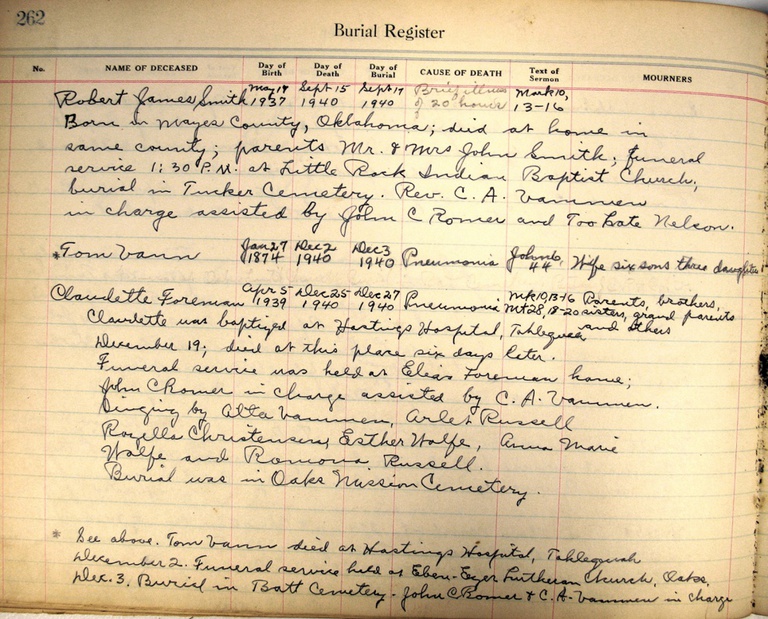 262
Burial Register
No. NAME OF DECEASED Day of Birth Day of Death Day of Burial CAUSE OF DEATH Text of Sermon MOURNERS
Robert James Smith May 14 1937 Sept 15 1940 Sept 17 1940 Brief illness of 20 hours Mark 10, 13-16
Born in Mayes County, Oklahoma; died at home in
same county; parents Mr. & Mrs John Smith; funeral
service 1:30 P.M. at Little Rock Indian Baptist Church;
burial in Tucker Cemetery. Rev. C. A. Vammen
in charge assisted by John C Romer and Too Late Nelson.
*Tom Vann Jan 27 1874 Dec 2 1940 Dec 3 1940 Pneumonia John 6, 44 Wife six sons three daughters
Claudette Foreman Apr 5 1939 Dec 25 1940 Dec 27 1940 Pneumonia Mk 10, 13-16 Mt 28, 18-20 Parents, brothers, sisters, grand parents and others
Claudette was baptized at Hastings Hospital, Tahlequah
December 19; died at this place six days later.
Funeral service was held at Elias Foreman home;
John C Romer in charge assisted by C. A. Vammen.
Singing by Alta Vammen, Arlet Russell
Rozella Christensen, Esther Wolfe, Anna Marie
Wolfe and Romona Russell.
Burial was in Oaks Mission Cemetery.
* See above. Tom Vann died at Hastings Hospital, Tahlequah
December 2. Funeral service held at Eben-Ezer Lutheran Church, Oaks,
Dec. 3. Buried in Batt Cemetery - John C Romer & C. A. Vammen in charge